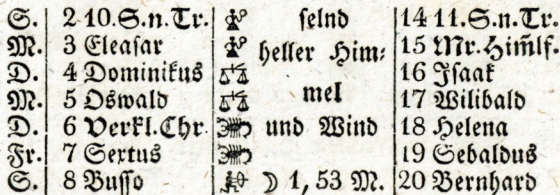 S. 2 10.S.n.Tr. ſelnd 14 11.S.n.Tr.
M. 3 Eleaſar heller Him⸗ 15 Mr.Him̃lf.
D. 4 Dominikus 16 Iſaak
M. 5 Oswald mel 17 Wilibald
D. 6 Verkl.Chr. und Wind 18 Helena
Fr. 7 Sextus 19 Sebaldus
S. 8 Buſſo ☽ 1, 53 M. 20 Bernhard